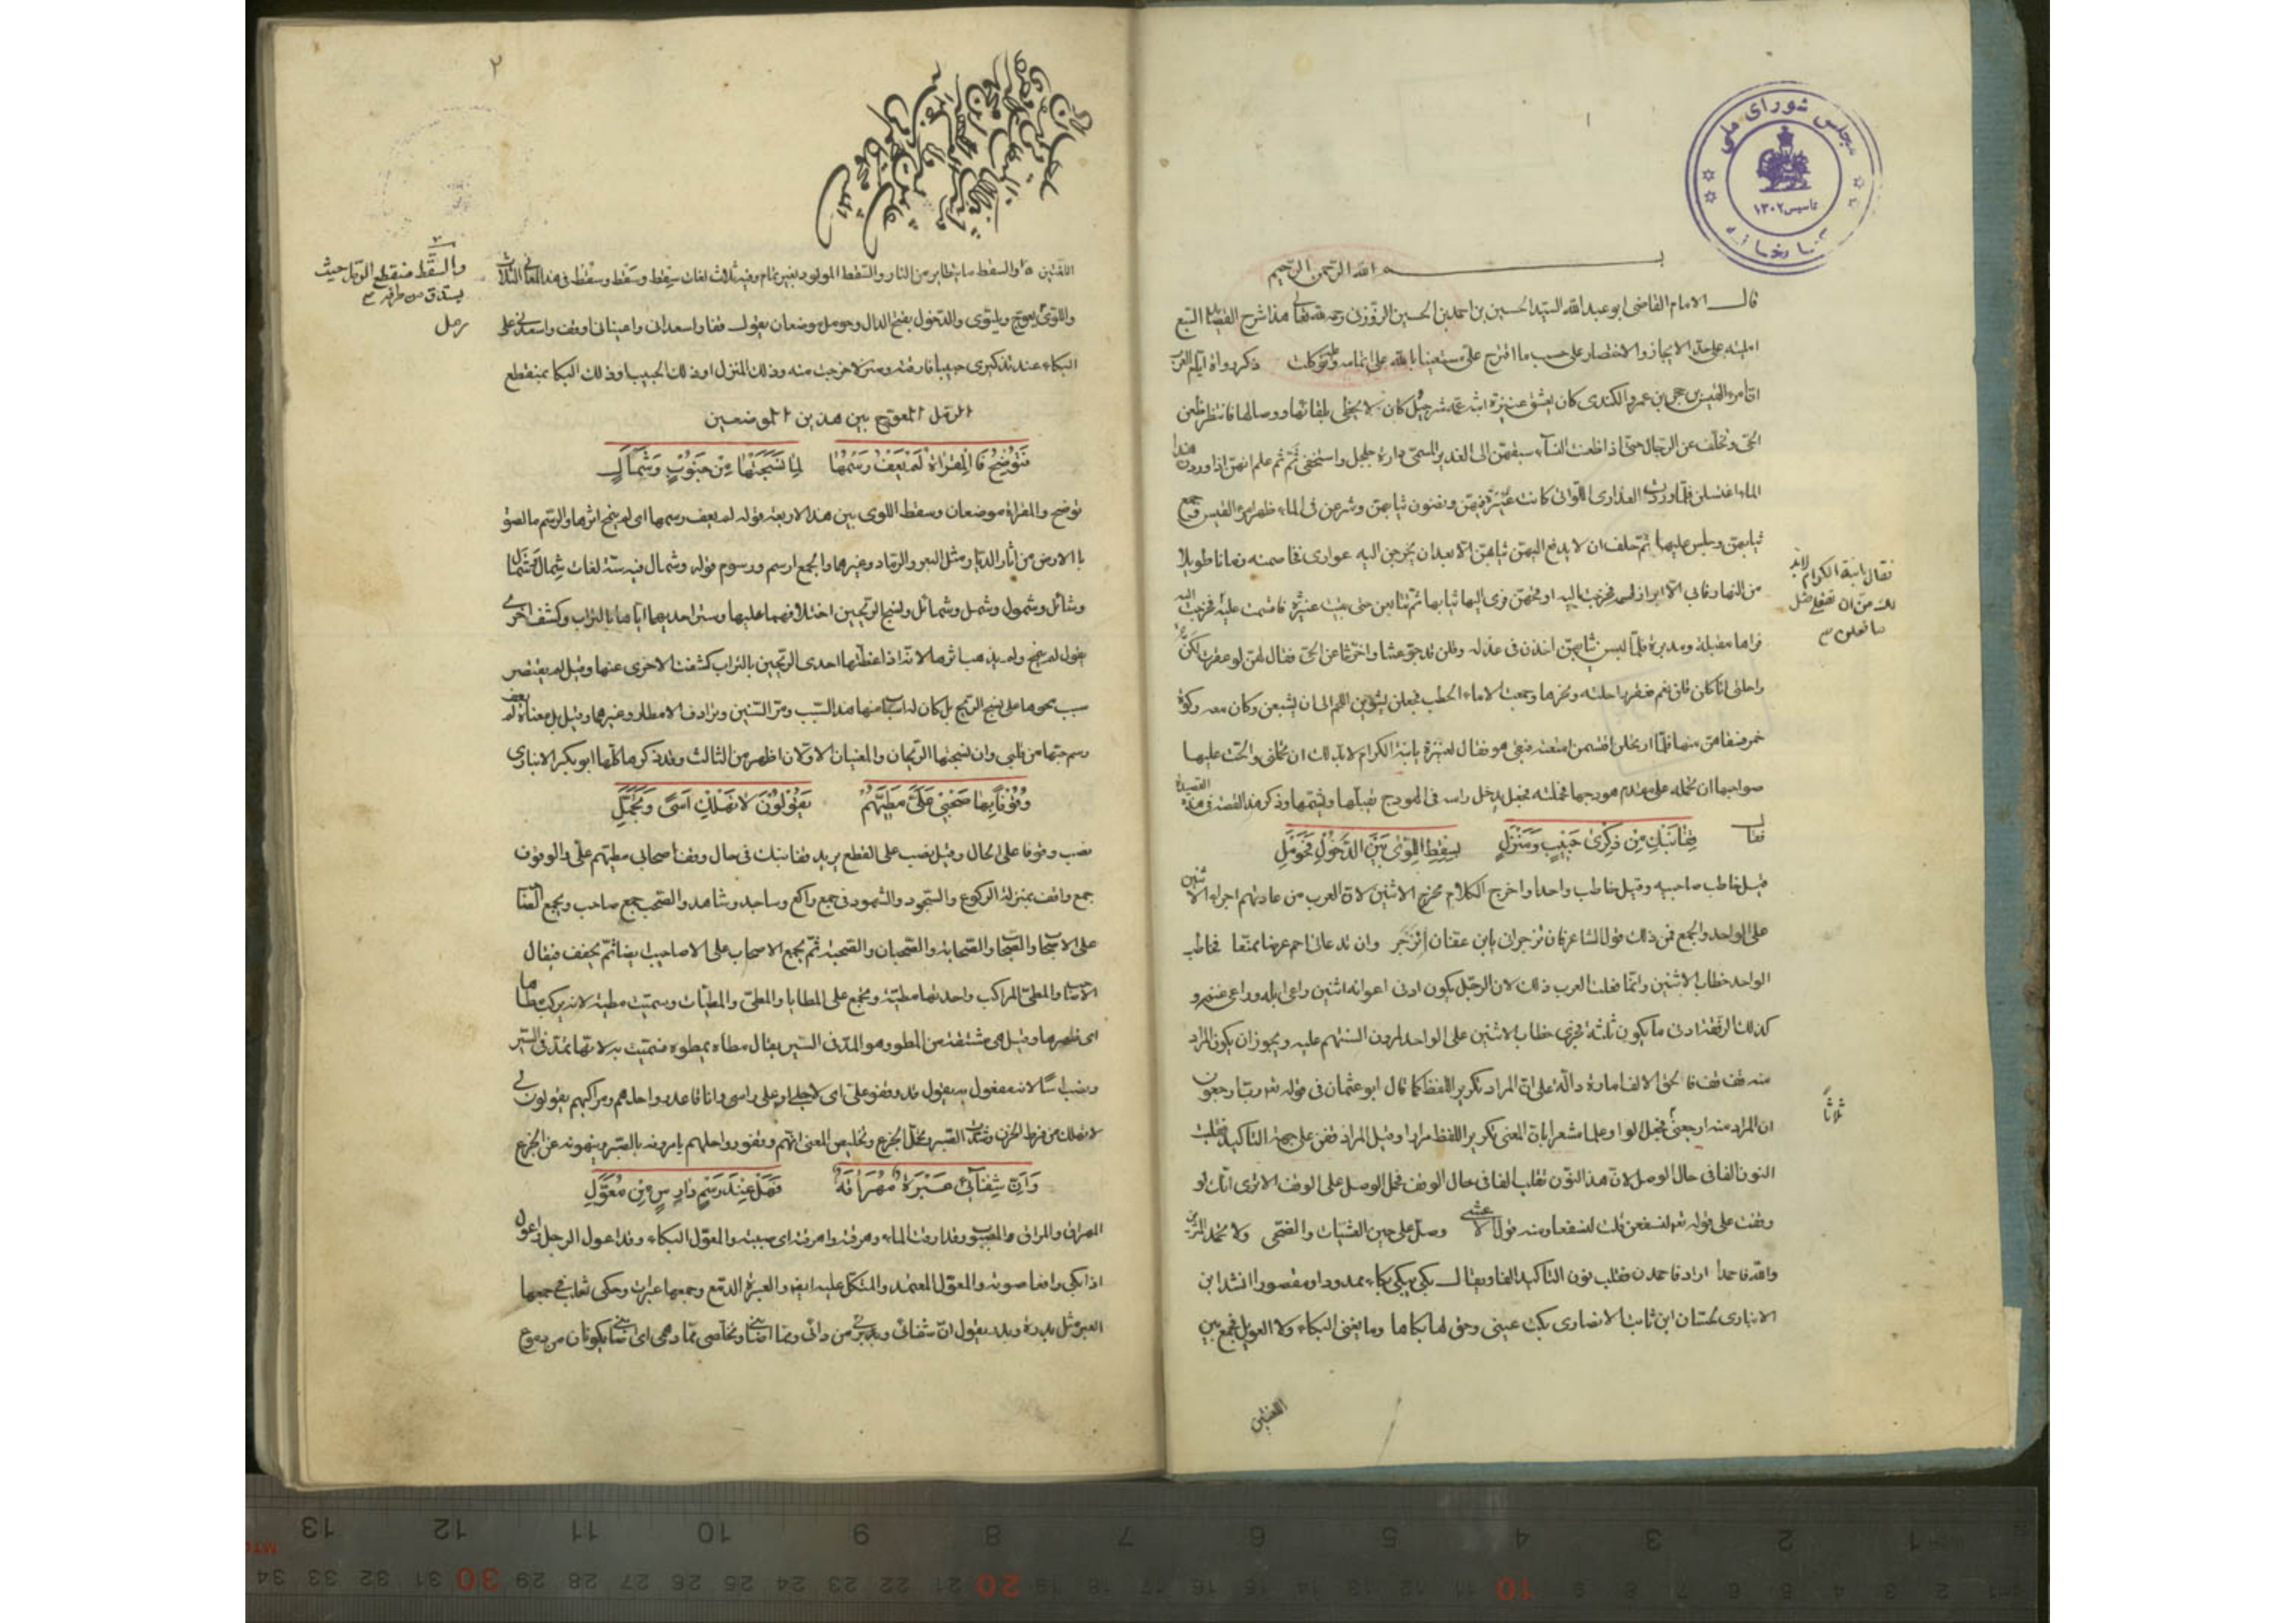 مجلس شورای ملی
تأسیس ۱۳۰۲
کتابخانه
بسم الله الرحمن الرحیم
قال الامام القاضی ابو عبد الله السید الحسین بن احمد بن الحسین الزوزنی رحمه الله تعالی هذا شرح القصائد السبع
املیته علی حد الایجاز والاختصار علی حسب ما اقترح علی مستعینا بالله علی اتمامه وعلیه توکلت ذکر رواة ایام العرب
ان امرء القیس بن حجر بن عمرو الکندی کان یعشق عنیزة ابنة عمه شرحبیل کان لا یحظی بلقائها ووصالها فانتظر ظعن
الحی وتخلف عن الرجال حتی اذا ظعنت النساء سبقهن الی الغدیر المسمی دارة جلجل واستخفی ثم ثم علم انهن اذا وردن هذا
الماء اغتسلن فلما وردت العذاری اللواتی کانت عنیزة فیهن ونضون ثیابهن وشرعن فی الماء ظهر امرء القیس وجمع
ثیابهن وجلس علیها ثم حلف ان لا یدفع الیهن ثیابهن الا بعد ان یخرجن الیه عواری فخاصمنه زمانا طویلا
من النهار فابی الا ابرار قسمه فخرجت الیه اوقحهن فرمی الیها ثیابها ثم تتابعن حتی بقیت عنیزة فاقسمت علیه فخرجت الیه
فراها مقبلة ومدبرة فلما لبسن ثیابهن اخذن فی عذله وقلن قد جوعتنا واخرتنا عن الحی فقال لهن لو عقرت لکن
راحلتی اتأکلن قلن نعم فعقر راحلته ونحرها وجمعت الاماء الحطب فجعلن یشوین اللحم الی ان شبعن وکان معه رکوة
خمر فسقاهن منها فلما ارتحلن اقتسمن امتعته فبقی هو فقال لعنیزة یا ابنة الکرام لا بد لک ان تحملنی والحت علیها
صواحبها ان تحمله علی مقدم هودجها فحملته فجعل یدخل راسه فی الهودج یقبلها ویشمها وذکر هذه القصة فی هذه القصیدة
فقال قِفَا نَبْكِ مِنْ ذِكْرَى حَبِيبٍ وَمَنْزِلِ بِسِقْطِ اللِّوَى بَيْنَ الدَّخُولِ فَحَوْمَلِ
قیل خاطب صاحبیه وقیل خاطب واحدا واخرج الکلام مخرج الاثنین لان العرب من عادتهم اجراء الاثنین
علی الواحد والجمع فمن ذلک قول الشاعر فان تزجرانی یا ابن عفان انزجر وان تدعانی احم عرضا ممنعا فخاطب
الواحد خطاب الاثنین وانما فعلت العرب ذلک لان الرجل یکون ادنی اعوانه اثنین راعی ابله وراعی غنمه و
کذلک الرفقة ادنی ما یکون ثلثة فجری خطاب الاثنین علی الواحد لمرون السنتهم علیه ویجوز ان یکون المراد
منه قف قف فالحق الالف امارة دالة علی ان المراد تکریر اللفظ کما قال ابو عثمان فی قوله تعالی رب ارجعون
ان المراد منه ارجعنی فجعل الواو علما مشعرا بان المعنی تکریر اللفظ مرارا وقیل المراد قفن علی جهة التاکید فقلبت
النون الفا فی حال الوصل لان هذا النون تقلب الفا فی حال الوقف فحمل الوصل علی الوقف الا تری انک لو
وقفت علی قوله تعالی لنسفعن قلت لنسفعا ومنه قول الاعشی وصل علی حین العشیات والضحی ولا تحمد المثرین
والله فاحمدا اراد فاحمدن فقلب نون التاکید الفا ویقال بکی یبکی بکاء ممدودا ومقصورا انشد ابن
الانباری لحسان ابن ثابت الانصاری بکت عینی وحق لها بکاها وما یغنی البکاء ولا العویل فجمع بین
اللغتین
فقال یا ابنة الکرام لابد
ثلاثا
۲
اللغتین والسقط ما یتطایر من النار والسقط المولود بغیر تمام وفیه ثلاث لغات سِقط وسَقط وسُقط فی هذه المعانی الثلاث
واللوی یعوج ویلتوی والدخول بفتح الدال وحومل موضعان یقول قفا واسعدانی واعینانی او قف واسعدنی علی
البکاء عند تذکری حبیبا فارقته ومنزلا خرجت منه وذلک المنزل او ذلک الحبیب او ذلک البکا بمنقطع
الرمل المعوج بین هذین الموضعین
فَتُوضِحَ فَالْمِقْرَاةِ لَمْ يَعْفُ رَسْمُهَا لِمَا نَسَجَتْهَا مِنْ جَنُوبٍ وَشَمْأَلِ
توضح والمقراة موضعان وسقط اللوی بین هذه الاربعة قوله لم یعف رسمها ای لم ینمح اثرها والرسم ما لصق
بالارض من آثار الدار مثل البعر والرماد وغیرهما والجمع ارسم ورسوم قوله وشمال فیه ستة لغات شمال وشمال
وشائل وشمول وشمل وشمائل ونسج الریحین اختلافهما علیها وستر احدیهما ایاها بالتراب وکشف اخری
یقول لم ینمح ولم یذهب اثرها لانه اذا غطتها احدی الریحین بالتراب کشفت الاخری عنها وقیل لم یقتصر
سبب محوها علی نسج الریح بل کان له اسباب منها هذا السبب ومر السنین وترادف الامطار وغیرهما وقیل بل معناه لم یعف
رسم حبها من قلبی وان نسجتها الریحان والمعنیان الاولان اظهر من الثالث وقد ذکرها کلها ابو بکر الانباری
وُقُوفًا بِهَا صَحْبِي عَلَيَّ مَطِيَّهُمْ يَقُولُونَ لَا تَهْلِكْ أَسًى وَتَجَمَّلِ
نصب وقوفا علی الحال وقیل نصب علی القطع یرید قفا نبک فی حال وقف اصحابی مطیهم علی والوقوف
جمع واقف بمنزلة الرکوع والسجود والشهود فی جمع راکع وساجد وشاهد والصحب جمع صاحب ویجمع الصاحب
علی الاصحاب والصحاب والصحابة والصحبان والصحبة ثم یجمع الاصحاب علی الاصاحیب ایضا ثم یخفف فیقال
الاصاحب والمطی المراکب واحدتها مطیة ویجمع علی المطایا والمطی والمطیات وسمیت مطیة لانه یرکب مطاها
ای ظهرها وقیل هی مشتقة من المطو وهو المد فی السیر یقال مطاه یمطوه فسمیت به لانها تمد فی السیر
ونصب اسًی لانه مفعول له یقول قد وقفوا علی ای لاجلی او علی راسی وانا قاعد رواحلهم ومراکبهم یقولون لی
لا تهلک من فرط الحزن وشدة الجزع وتخلیص المعنی انهم وقفوا رواحلهم یامرونه بالصبر وینهونه عن الجزع
وَإِنَّ شِفَائِي عَبْرَةٌ مُهَرَاقَةٌ فَهَلْ عِنْدَ رَسْمٍ دَارِسٍ مِنْ مُعَوَّلِ
المهراق والمراق المصبوب وقد ارقت الماء وهرقته واهرقته ای صببته والمعول البکاء وقد اعول الرجل
اذا بکی رافعا صوته والمعول المعتمد والمتکل علیه ایضا والعبرة الدمع وجمعها عبرات وحکی ثعلب فی جمعها
العبر مثل بدرة وبدر یقول ان شفائی من دائی ومما اصابنی
والسقط منقطع الرمل حیث
یستدق من طرفه
رمل